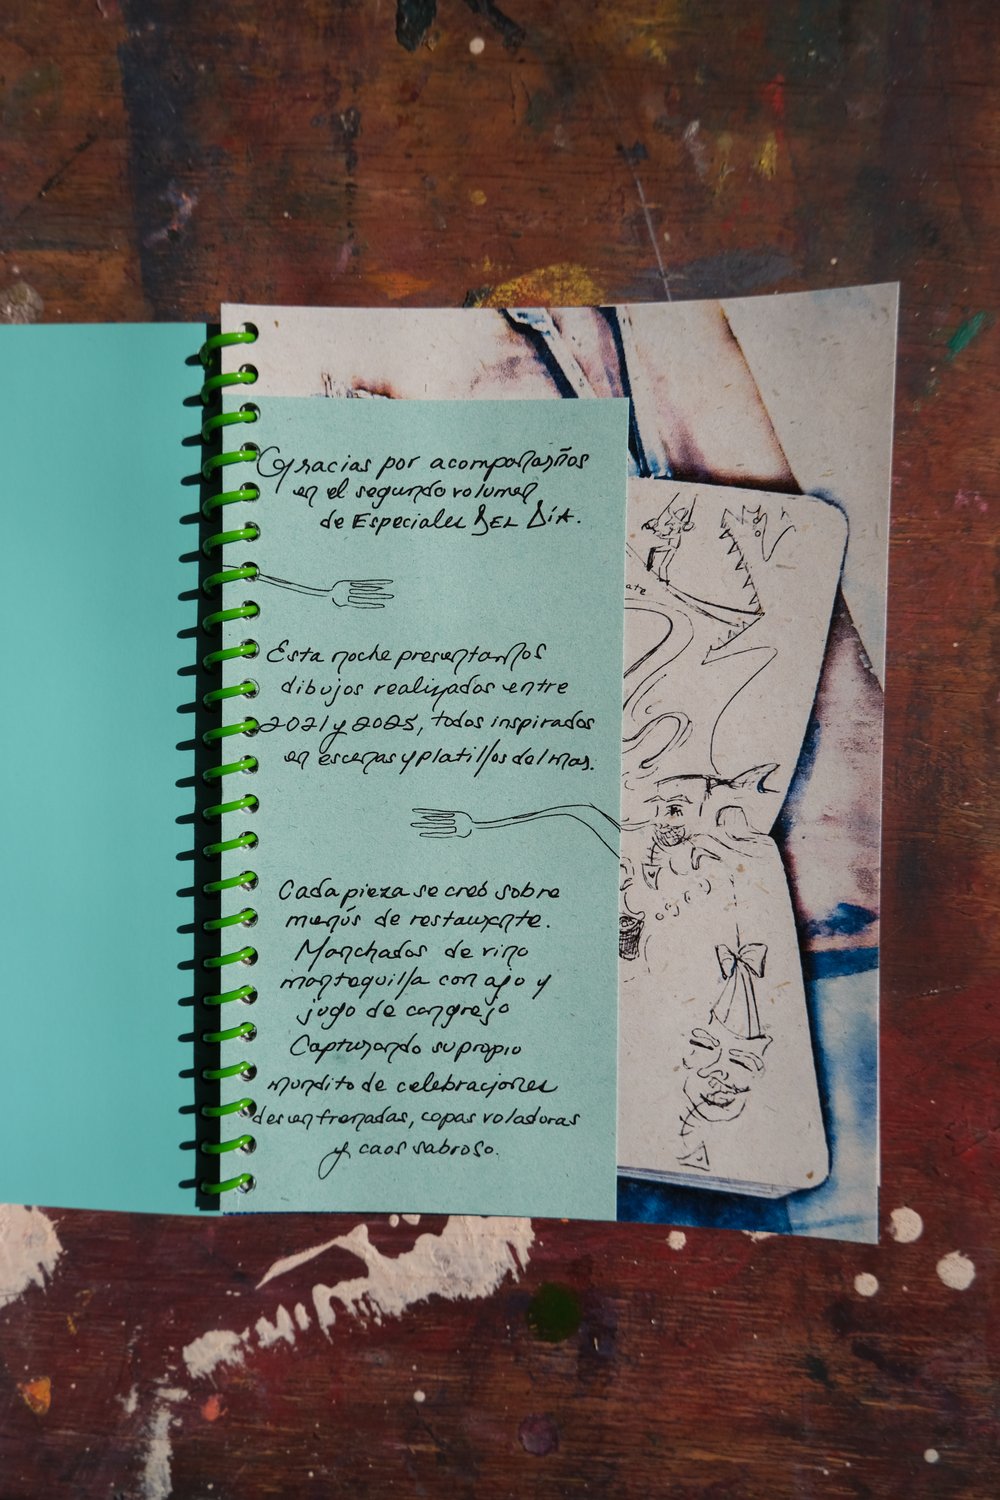 Gracias por acompañarnos
en el segundo volumen
de Especiales DEL DíA.
Esta noche presentamos
dibujos realizados entre
2021 y 2025, todos inspirados
en escenas y platillos del mar.
Cada pieza se creó sobre
menús de restaurante.
Manchados de vino
mantequilla con ajo y
jugo de cangrejo
Capturando su propio
mundito de celebraciones
desenfrenadas, copas voladoras
y caos sabroso.